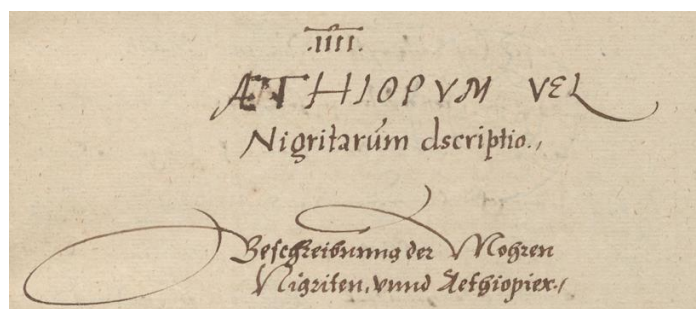 .IIII.
ÆTHIOPVM VEL
Nigritarum dscriptio.,
Beschreibunng der Mohren
Nigriten, vnnd Aethiopier./